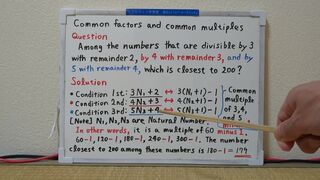 Common factors and common multiples
Question
Among the numbers that are divisible by 3
with remainder 2, by 4 with remainder 3, and
by 5 with remainder 4, which is closest to 200?
Solution
• Condition 1st: 3N₁+2 ↔ 3(N₁+1)-1
• Condition 2nd: 4N₂+3 ↔ 4(N₂+1)-1
• Condition 3rd: 5N₃+4 ↔ (N₃+1)-1
Common
multiple
of 3,4,
and 5
minus
[Note] N₁,N₂,N₃ are Natural Number.
In other words, it is a multiple of 60 minus 1.
60-1, 120-1, 180-1, 240-1, 300-1. The number
closest to 200 among these numbers is 180-1=179